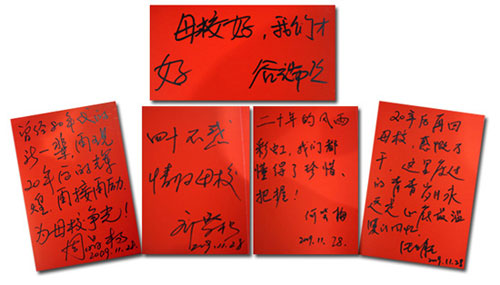 母校好,我们才
好
曾经20年
20年后的辉
煌,再接再励,
为母校争光!
2009.11.28
四十不惑
情归母校
2009.11.28
二十年的风雨
彩虹,我们都
懂得了珍惜、
把握!
2009.11.28.
20年后再回
母校,感慨万
千,这里度过
的青春岁月永
远是心底最温
馨的回忆
2009.11.28